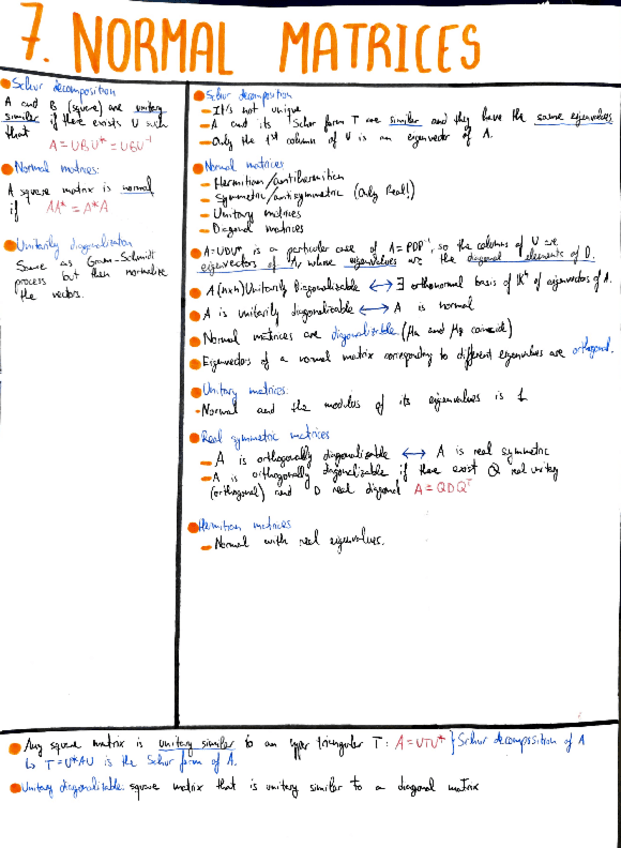 7. NORMAL MATRICES
Schur decomposition
A and B (square) are unitary
similar if there exists U such
that
A = UBU* = UBU⁻¹
Normal matrices:
A square matrix is normal
if AA* = A*A
Unitarily diagonalization
Same as Gram-Schmidt
process but then normalize
the vectors.
Schur decomposition
- It's not unique
- A and its Schur form T are similar and they have the same eigenvalues
- Only the 1st column of U is an eigenvector of A.
Normal matrices
- Hermitian/antihermitian
- Symmetric/antisymmetric (Only Real!)
- Unitary matrices
- Diagonal matrices
A=UDU* is a particular case of A=PDP⁻¹, so the columns of U are
eigenvectors of A, whose eigenvalues are the diagonal elements of D.
A (nxn) Unitarily Diagonalizable ↔ ∃ orthonormal basis of 𝕂ⁿ of eigenvectors of A.
A is unitarily diagonalizable ↔ A is normal
Normal matrices are diagonalizable (Ma and Mg coincide)
Eigenvectors of a normal matrix corresponding to different eigenvalues are orthogonal.
Unitary matrices:
- Normal and the modulus of its eigenvalues is 1
Real symmetric matrices
- A is orthogonally diagonalizable ↔ A is real symmetric
- A is orthogonally diagonalizable if there exist Q real unitary
(orthogonal) and D real diagonal A = QDQᵀ
Hermitian matrices
- Normal with real eigenvalues.
Any square matrix is unitary similar to an upper triangular T: A=UTU* } Schur decomposition of A
↳ T=U*AU is the Schur form of A.
Unitary diagonalitable: square matrix that is unitary similar to a diagonal matrix